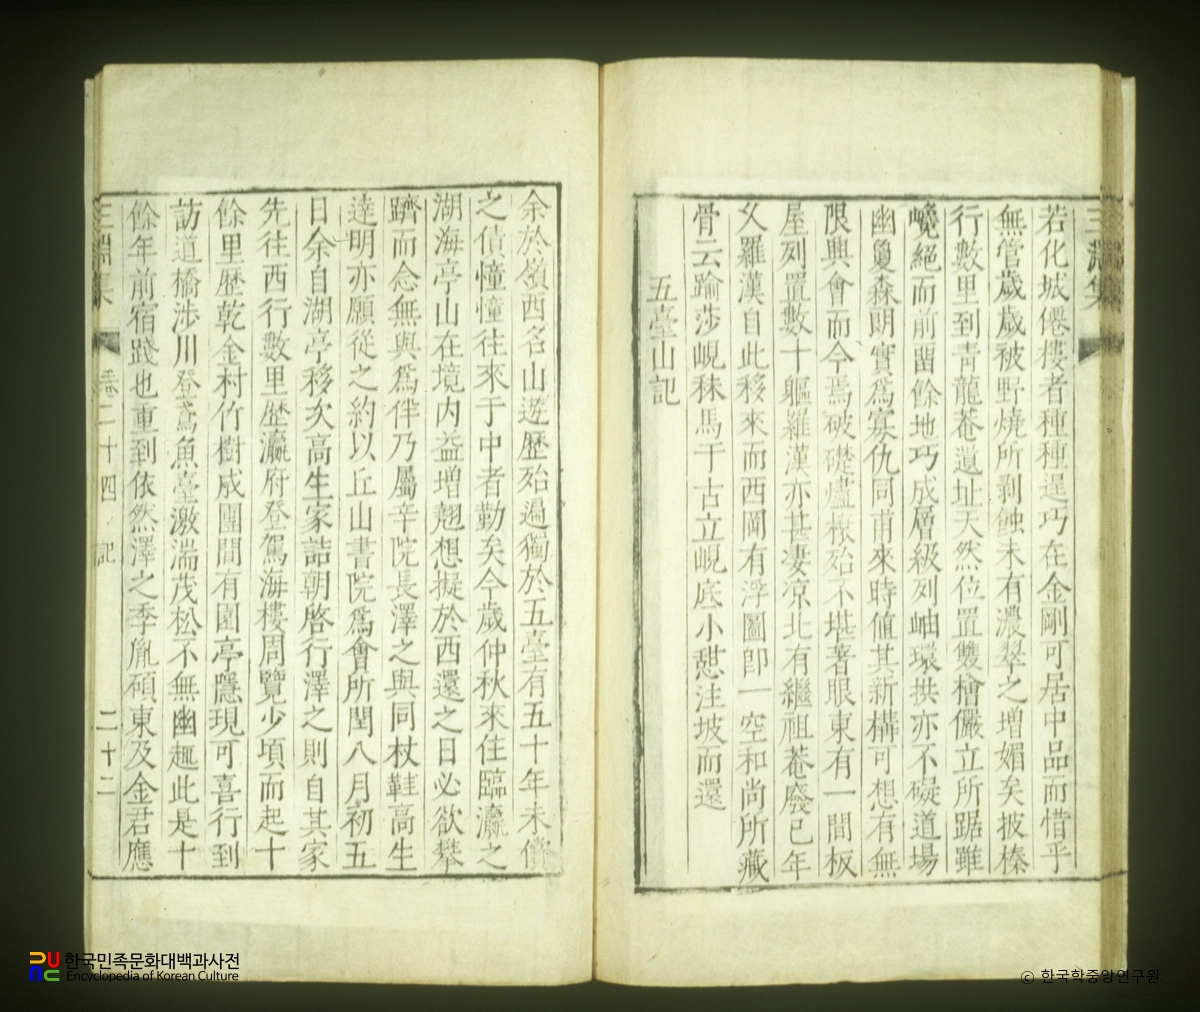 三淵集
若化城僊樓者種種逞巧在金剛可居中品而惜乎
無管歲歲被野燒所剥蝕未有濃翠之增媚矣披榛
行數里到靑龍菴遺址天然位置雙檜儼立所踞雖
巉絕而前留餘地巧成層級列岫環拱亦不礙道場
幽敻森朗實爲寡仇同甫來時値其新構可想有無
限興會而今焉破礎燼椽殆不堪著眼東有一間板
屋列置數十軀羅漢亦甚凄凉北有繼祖菴廢已年
久羅漢自此移來而西岡有浮圖卽一空和尚所藏
骨云踰莎峴秣馬干古立峴底小憇注坡而還
五臺山記
余於嶺西名山遊歷殆遍獨於五臺有五十年未償
之債憧憧往來于中者勤矣今歲仲秋來住臨瀛之
湖海亭山在境內益增翹想擬於西還之日必欲攀
躋而念無與爲伴乃屬辛院長澤之與同杖鞋高生
達明亦願從之約以丘山書院爲會所閏八月初五
日余自湖亭移次高生家詰朝啓行澤之則自其家
先往西行數里歷瀛府登駕海樓周覽少頃而起十
餘里歷乾金村竹樹成園間有園亭隱現可喜行到
訪道橋涉川登鳶魚臺激湍茂松不無幽趣此是十
餘年前宿踐也重到依然澤之季胤碩東及金君應
三淵集 卷二十四 記 二十二
한국민족문화대백과사전
Encyclopedia of Korean Culture
ⓒ 한국학중앙연구원.